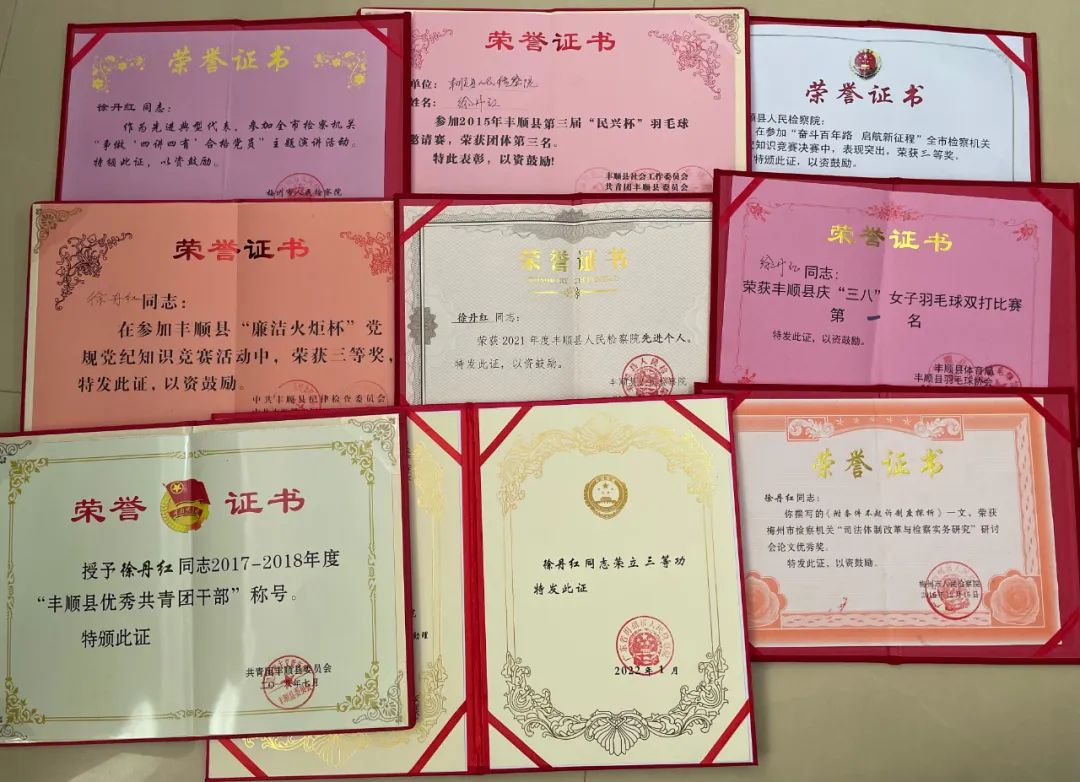 荣誉证书
徐丹红 同志：
作为先进典型代表，参加全市检察机关
“争做‘四讲四有’合格党员”主题演讲活动。
特颁此证，以资鼓励。
梅州市人民检察院
荣誉证书
单位：丰顺县人民检察院
姓名：徐丹红
参加2015年丰顺县第三届“民兴杯”羽毛球
邀请赛，荣获团体第三名。
特此表彰，以资鼓励!
丰顺县社会工作委员会
共青团丰顺县委员会
荣誉证书
顺县人民检察院：
在参加“奋斗百年路 启航新征程”全市检察机关
知识竞赛决赛中，表现突出，荣获三等奖。
特颁此证，以资鼓励。
荣誉证书
徐丹红同志：
在参加丰顺县“廉洁火炬杯”党
规党纪知识竞赛活动中，荣获三等奖，
特发此证，以资鼓励。
中共丰顺县纪律检查委员会
荣誉证书
徐丹红 同志：
荣获 2021 年度丰顺县人民检察院先进个人。
特发此证，以资鼓励。
丰顺县人民检察院
荣誉证书
徐丹红同志：
荣获丰顺县庆“三八”女子羽毛球双打比赛
第 一 名
特发此证，以资鼓励。
丰顺县体育局
丰顺县羽毛球协会
荣誉证书
授予徐丹红同志2017-2018年度
“丰顺县优秀共青团干部”称号。
特颁此证
共青团丰顺县委员会
徐丹红同志荣立三等功
特发此证
2022年1月
荣誉证书
徐丹红同志：
你撰写的《附条件不起诉制度探析》一文，荣获
梅州市检察机关“司法体制改革与检察实务研究”研讨
会论文优秀奖。
特发此证，以资鼓励。
梅州市人民检察院